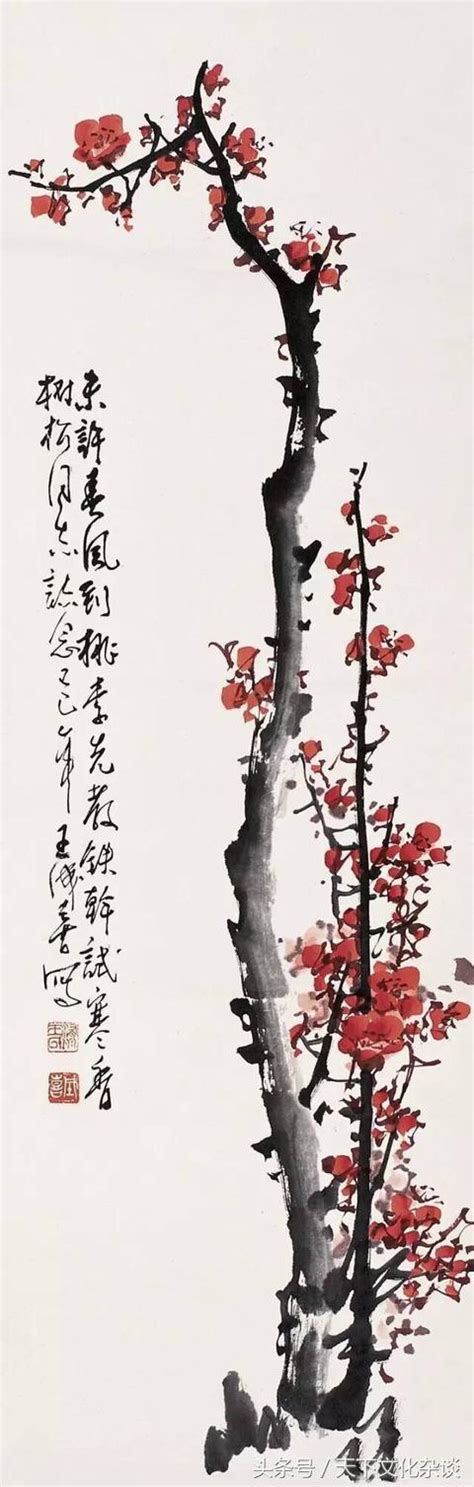 未許春風到桃李先教鉄幹試寒香
樹松同志誌念己巳年王成喜寫
王成
喜
头条号 / 天下文化杂谈